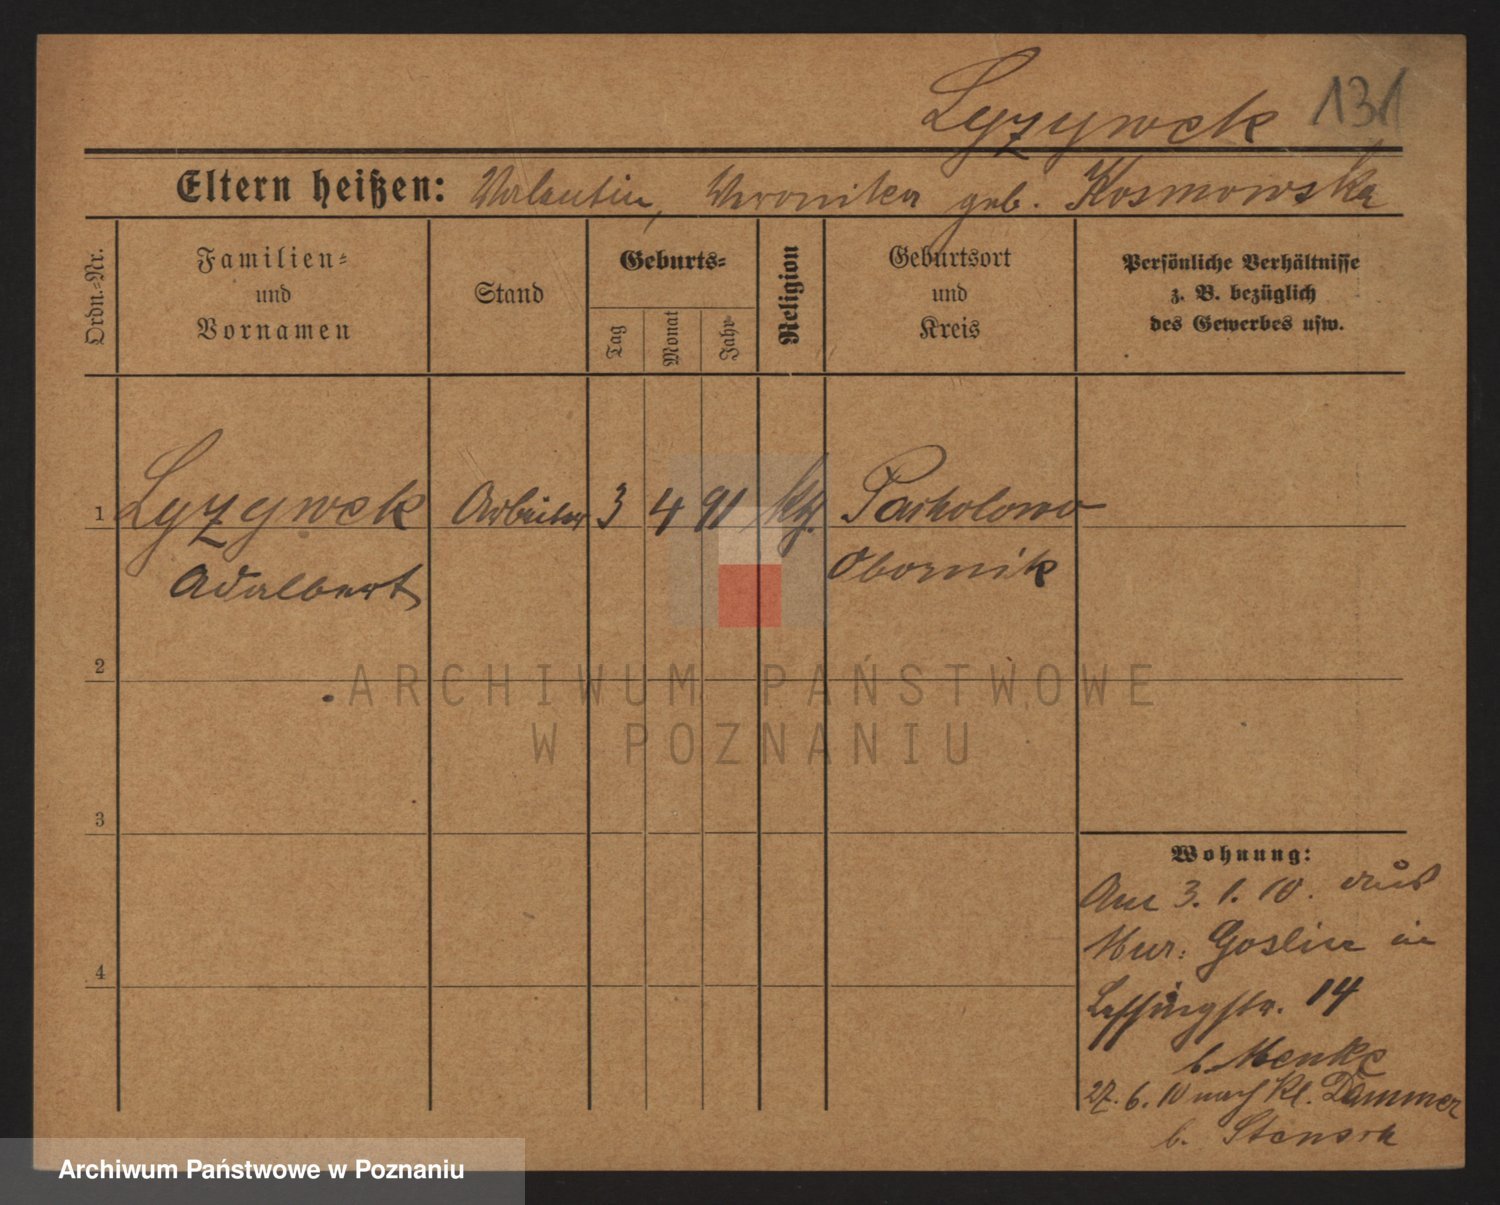 Lyzywek 131
Eltern heißen: Valentin, Veronika geb. Kosmowska
Ordn.-Nr.
Familien-
und
Vornamen
Stand
Geburts-
Tag
Monat
Jahr
Religion
Geburtsort
und
Kreis
Persönliche Verhältnisse
z. B. bezüglich
des Gewerbes usw.
1 Lyzywek Arbeiter 3 4 91 kth. Parkolowo
Adalbert Obornik
2
3
4
Wohnung:
Am 3. 1. 10. aus
Mur. Goslin in
Lessingstr. 14
b. Menke
27. 6. 10 nach Kl. Dammer
b.
ARCHIWUM PAŃSTWOWE
W POZNANIU
Archiwum Państwowe w Poznaniu